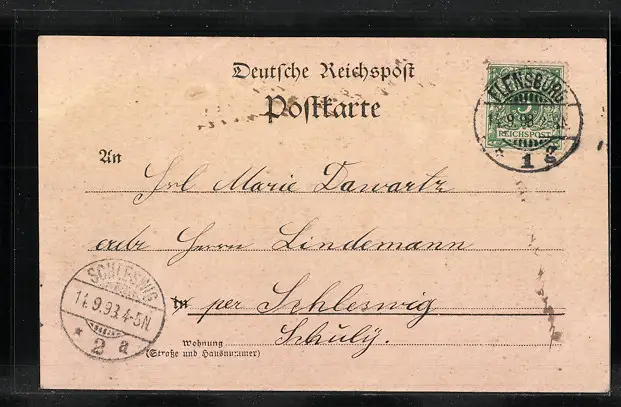 Deutsche Reichspost
Postkarte
FLENSBURG
9.98.4-5N
* 1 g
5
REICHSPOST
An
Frl Marie Dawartz
Herrn Lindemann
SCHLESWIG
9.98.4-5N.
* 2 a
in per Schleswig
Schuly.
Wohnung
(Straße und Hausnummer)